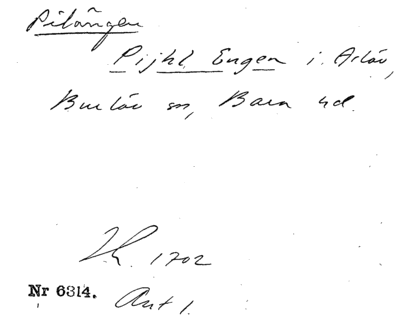 Pilängen
Pijhl Engen i Arlöv,
Burlöv sn, Bara hd.
Jb. 1702
Nr 6314. Ant 1.